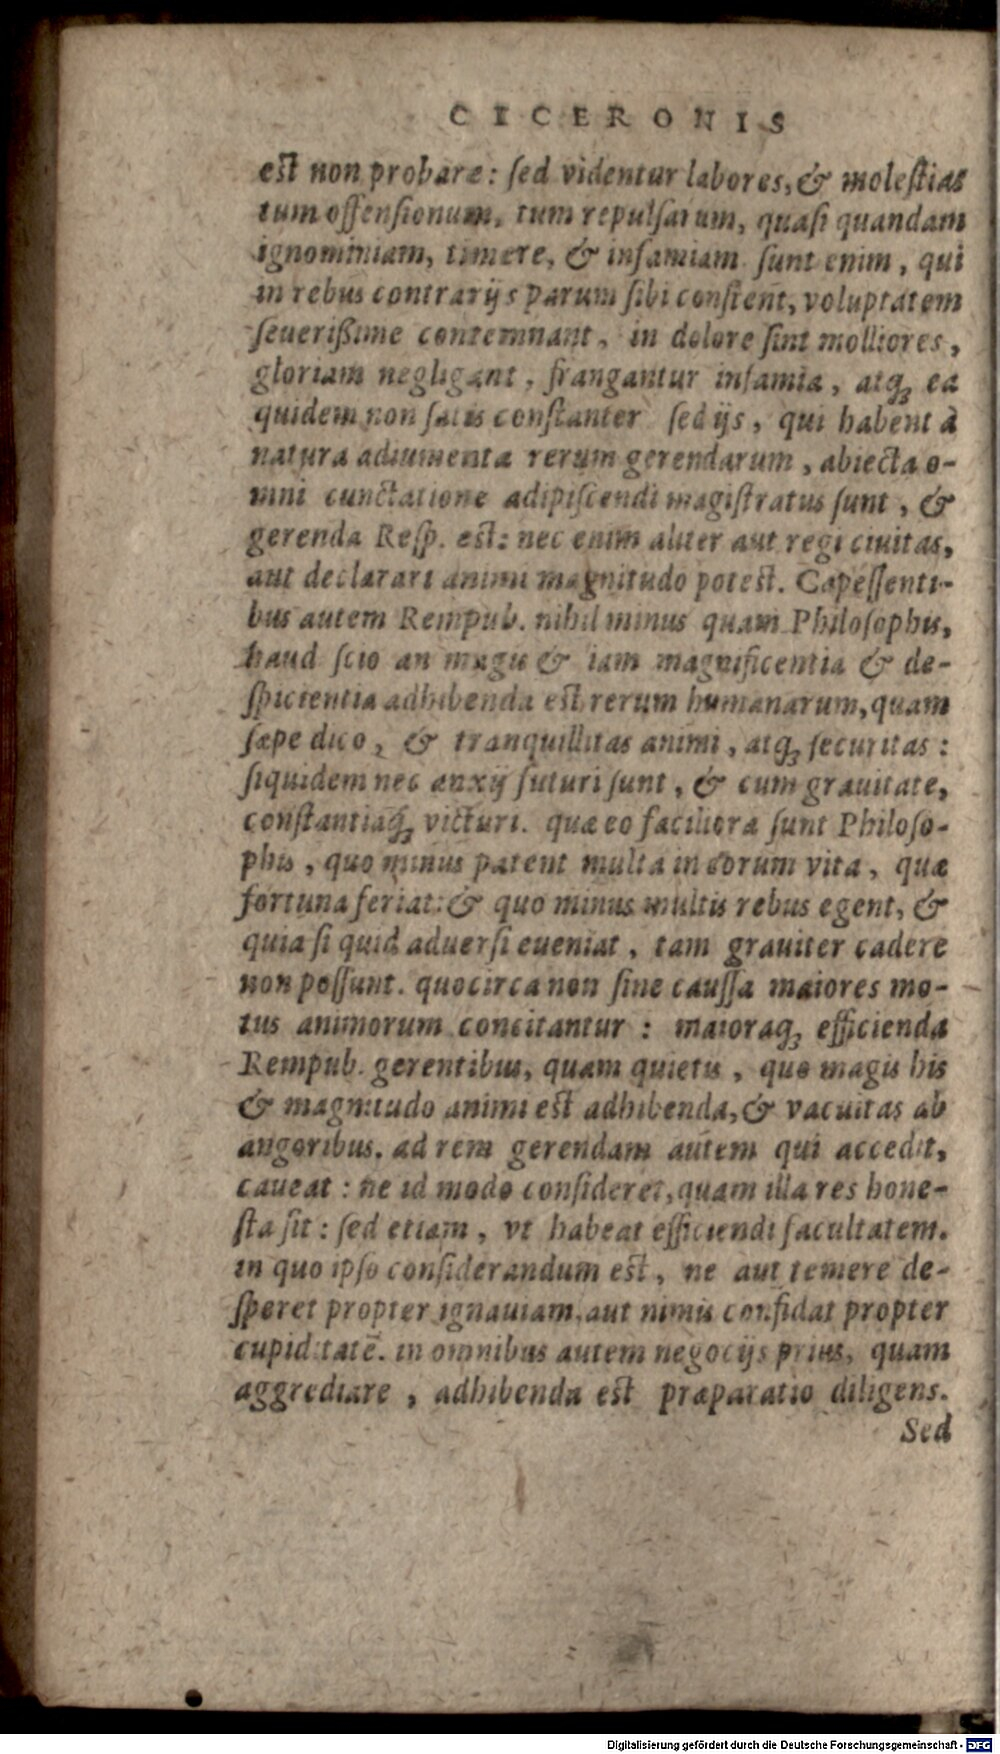 CICERONIS
est non probare: sed videntur labores, & molestias
tum offensionum, tum repulsarum, quasi quandam
ignominiam, timere, & infamiam sunt enim, qui
in rebus contrarijs parum sibi constent, voluptatem
seuerißime contemnant, in dolore sint molliores,
gloriam negligant, frangantur infamia, atq; ea
quidem non satis constanter sed ijs, qui habent à
natura adiumenta rerum gerendarum, abiecta o-
mni cunctatione adipiscendi magistratus sunt, &
gerenda Resp. est: nec enim aliter aut regi ciuitas,
aut declarari animi magnitudo potest. Capessenti-
bus autem Rempub. nihil minus quam Philosophis,
haud scio an magis & iam magnificentia & de-
spicientia adhibenda est rerum humanarum, quam
sæpe dico, & tranquillitas animi, atq; securitas:
siquidem nec anxij futuri sunt, & cum grauitate,
constantiaq; victuri. quæ eo faciliora sunt Philoso-
phis, quo minus patent multa in eorum vita, quæ
fortuna feriat: & quo minus multis rebus egent, &
quia si quid aduersi eueniat, tam grauiter cadere
non possunt. quocirca non sine caussa maiores mo-
tus animorum concitantur: maioraq; efficienda
Rempub. gerentibus, quam quietis, quo magis his
& magnitudo animi est adhibenda, & vacuitas ab
angoribus. ad rem gerendam autem qui accedit,
caueat: ne id modo consideret, quam illa res hone-
sta sit: sed etiam, vt habeat efficiendi facultatem.
in quo ipso considerandum est, ne aut temere de-
speret propter ignauiam, aut nimis confidat propter
cupiditatē. in omnibus autem negocijs prius, quam
aggrediare, adhibenda est præparatio diligens.
Sed
Digitalisierung gefördert durch die Deutsche Forschungsgemeinschaft - DFG